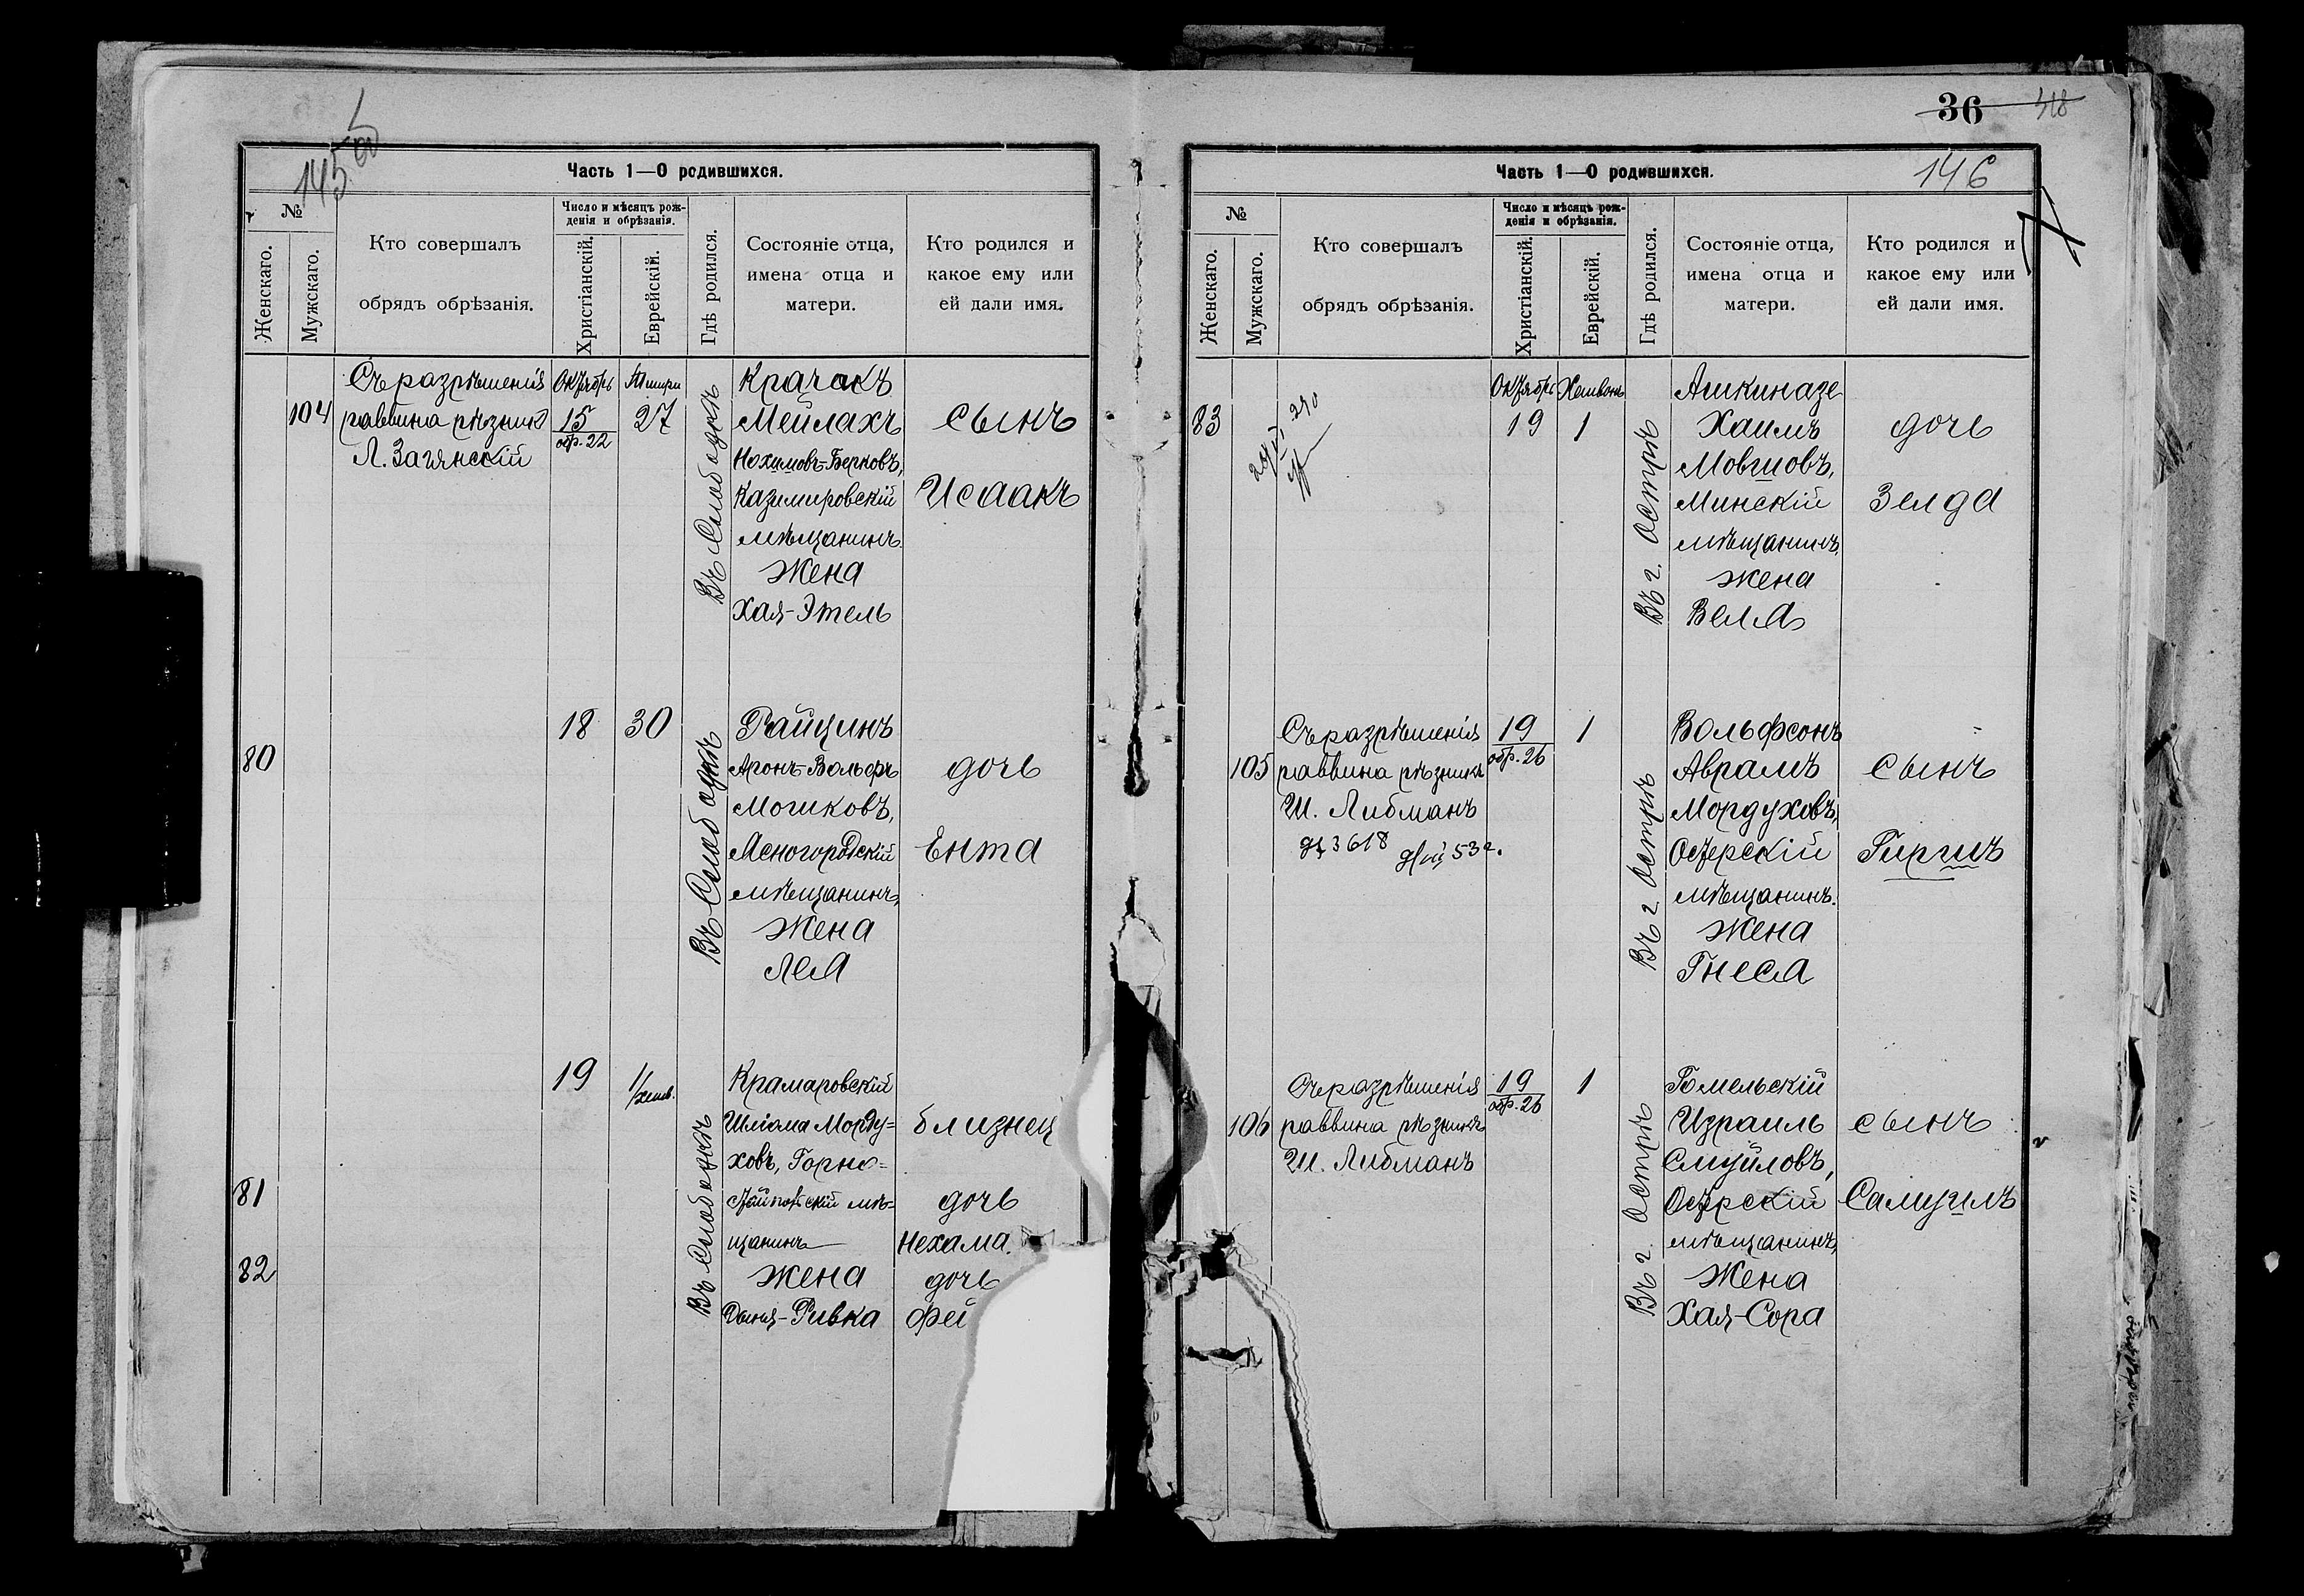 145
Часть 1—О родившихся.
№
Женскаго.
Мужскаго.
Кто совершалъ
обрядъ обрѣзанія.
Число и мѣсяцъ рож-
денія и обрѣзанія.
Христіанскій.
Еврейскій.
Гдѣ родился.
Состояніе отца,
имена отца и
матери.
Кто родился и
какое ему или
ей дали имя.
104
Съ разрѣшенія
раввина рѣзник
Л. Загянскій
Октябрь
15
обр. 22
Тишри
27
Въ Слободкѣ
Крачакъ
Мейлахъ
Нохимовъ-Берковъ,
Казимировскій
мѣщанинъ.
Жена
Хая-Этель
сынъ
Исаакъ
80
18
30
Въ Слободкѣ
Райцинъ
Аронъ-Вольфъ
Мошковъ,
Ясногородскій
мѣщанинъ,
Жена
Леа
дочь
Ента
81
82
19
1/хешв.
Въ Слободкѣ
Крамаровскій
Шліома Морду=
ховъ, Горно=
стайпольскій мѣ=
щанинъ
Жена
Двыня-Ривка
близнец
дочь
Нехама.
дочь
Фей
36
146
Часть 1—О родившихся.
№
Женскаго.
Мужскаго.
Кто совершалъ
обрядъ обрѣзанія.
Число и мѣсяцъ рож-
денія и обрѣзанія.
Христіанскій.
Еврейскій.
Гдѣ родился.
Состояніе отца,
имена отца и
матери.
Кто родился и
какое ему или
ей дали имя.
83
Октябрь
19
Хешвонъ
1
Въ г. Острѣ
Ашкиназе
Хаимъ
Мовшовъ,
Минскій
мѣщанинъ.
жена
Вела
дочь
Зелда
105
Съ разрѣшенія
раввина рѣзникъ
Ш. Либманъ
19
обр. 26
1
Въ г. Острѣ
Вольфсонъ
Аврамъ
Мордуховъ,
Остерскій
мѣщанинъ.
Жена
Гнеса
сынъ
Гиршъ
106
Съ разрѣшенія
раввина рѣзникъ
Ш. Либманъ
19
обр. 26
1
Въ г. Острѣ
Гомельскій
Израиль
Смуйловъ,
Остерскій
мѣщанинъ,
Жена
Хая-Сора
сынъ
Самуилъ